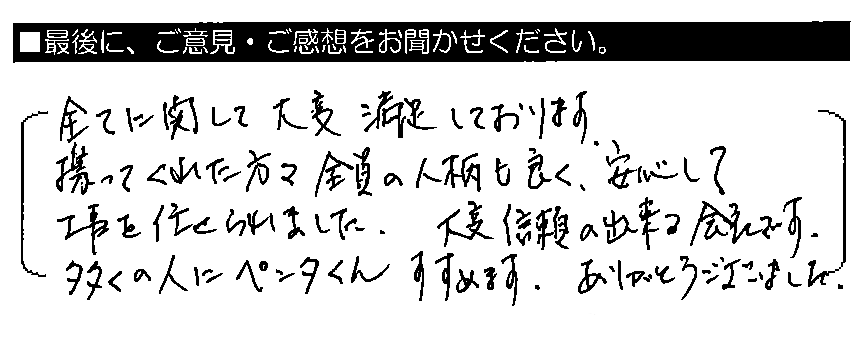 ■最後に、ご意見・ご感想をお聞かせください。
全てに関して大変満足しております。
携ってくれた方々全員の人柄も良く、安心して
工事を任せられました。大変信頼の出来る会社です。
多くの人にペンタくんすすめます。ありがとうございました。